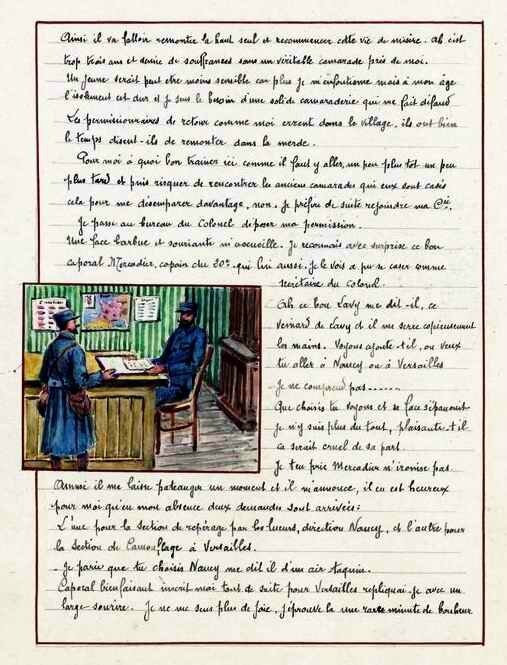 Ainsi il va falloir remonter la haut seul et recommencer cette vie de misère. Ah c'est
trop trois ans et demie de souffrances sans un véritable camarade près de moi.
Un jeune serait peut etre moins sensible car plus je m'enfoutisme mais à mon âge
l'isolement est dur et je sens le besoin d'une solide camaraderie qui me fait défaut
Les permissionnaires de retour comme moi errent dans le village, ils ont bien
le temps disent-ils de remonter dans la merde.
Pour moi à quoi bon trainer ici comme il faut y aller, un peu plus tot un peu
plus tard et puis risquer de rencontrer les anciens camarades qui eux sont casés
cela pour me désemparer davantage, non. Je préfère de suite rejoindre ma Cie.
Je passe au bureau du Colonel déposer ma permission.
Une face barbue et souriante m'accueille. Je reconnais avec surprise ce bon
caporal Mercadier, copain du 30e qui lui aussi, je le vois a pu se caser comme
secrétaire du colonel.
Ah ce bon Lavy me dit-il, ce
veinard de Lavy et il me serre copieusement
les mains. Voyons ajoute-t-il, ou veux
tu aller à Nancy ou à Versailles
Je ne comprend pas......
Que choisis tu voyons et sa face s'épanouit
Je n'y suis plus du tout, plaisante-t-il
ce serait cruel de sa part
Je t'en prie Mercadier n'ironise pas
Amusé il me laisse patauger un moment et il m'annonce, il en est heureux
pour moi qu'en mon absence deux demandes sont arrivées:
L'une pour la section de repérage par les lueurs, direction Nancy, et l'autre pour
la section de Camouflage à Versailles.
- Je parie que tu choisis Nancy me dit il d'un air taquin.
Caporal bienfaisant inscrit moi tout de suite pour Versailles répliquai-je avec un
large sourire. Je ne me sens plus de joie, j'éprouve la une rare minute de bonheur